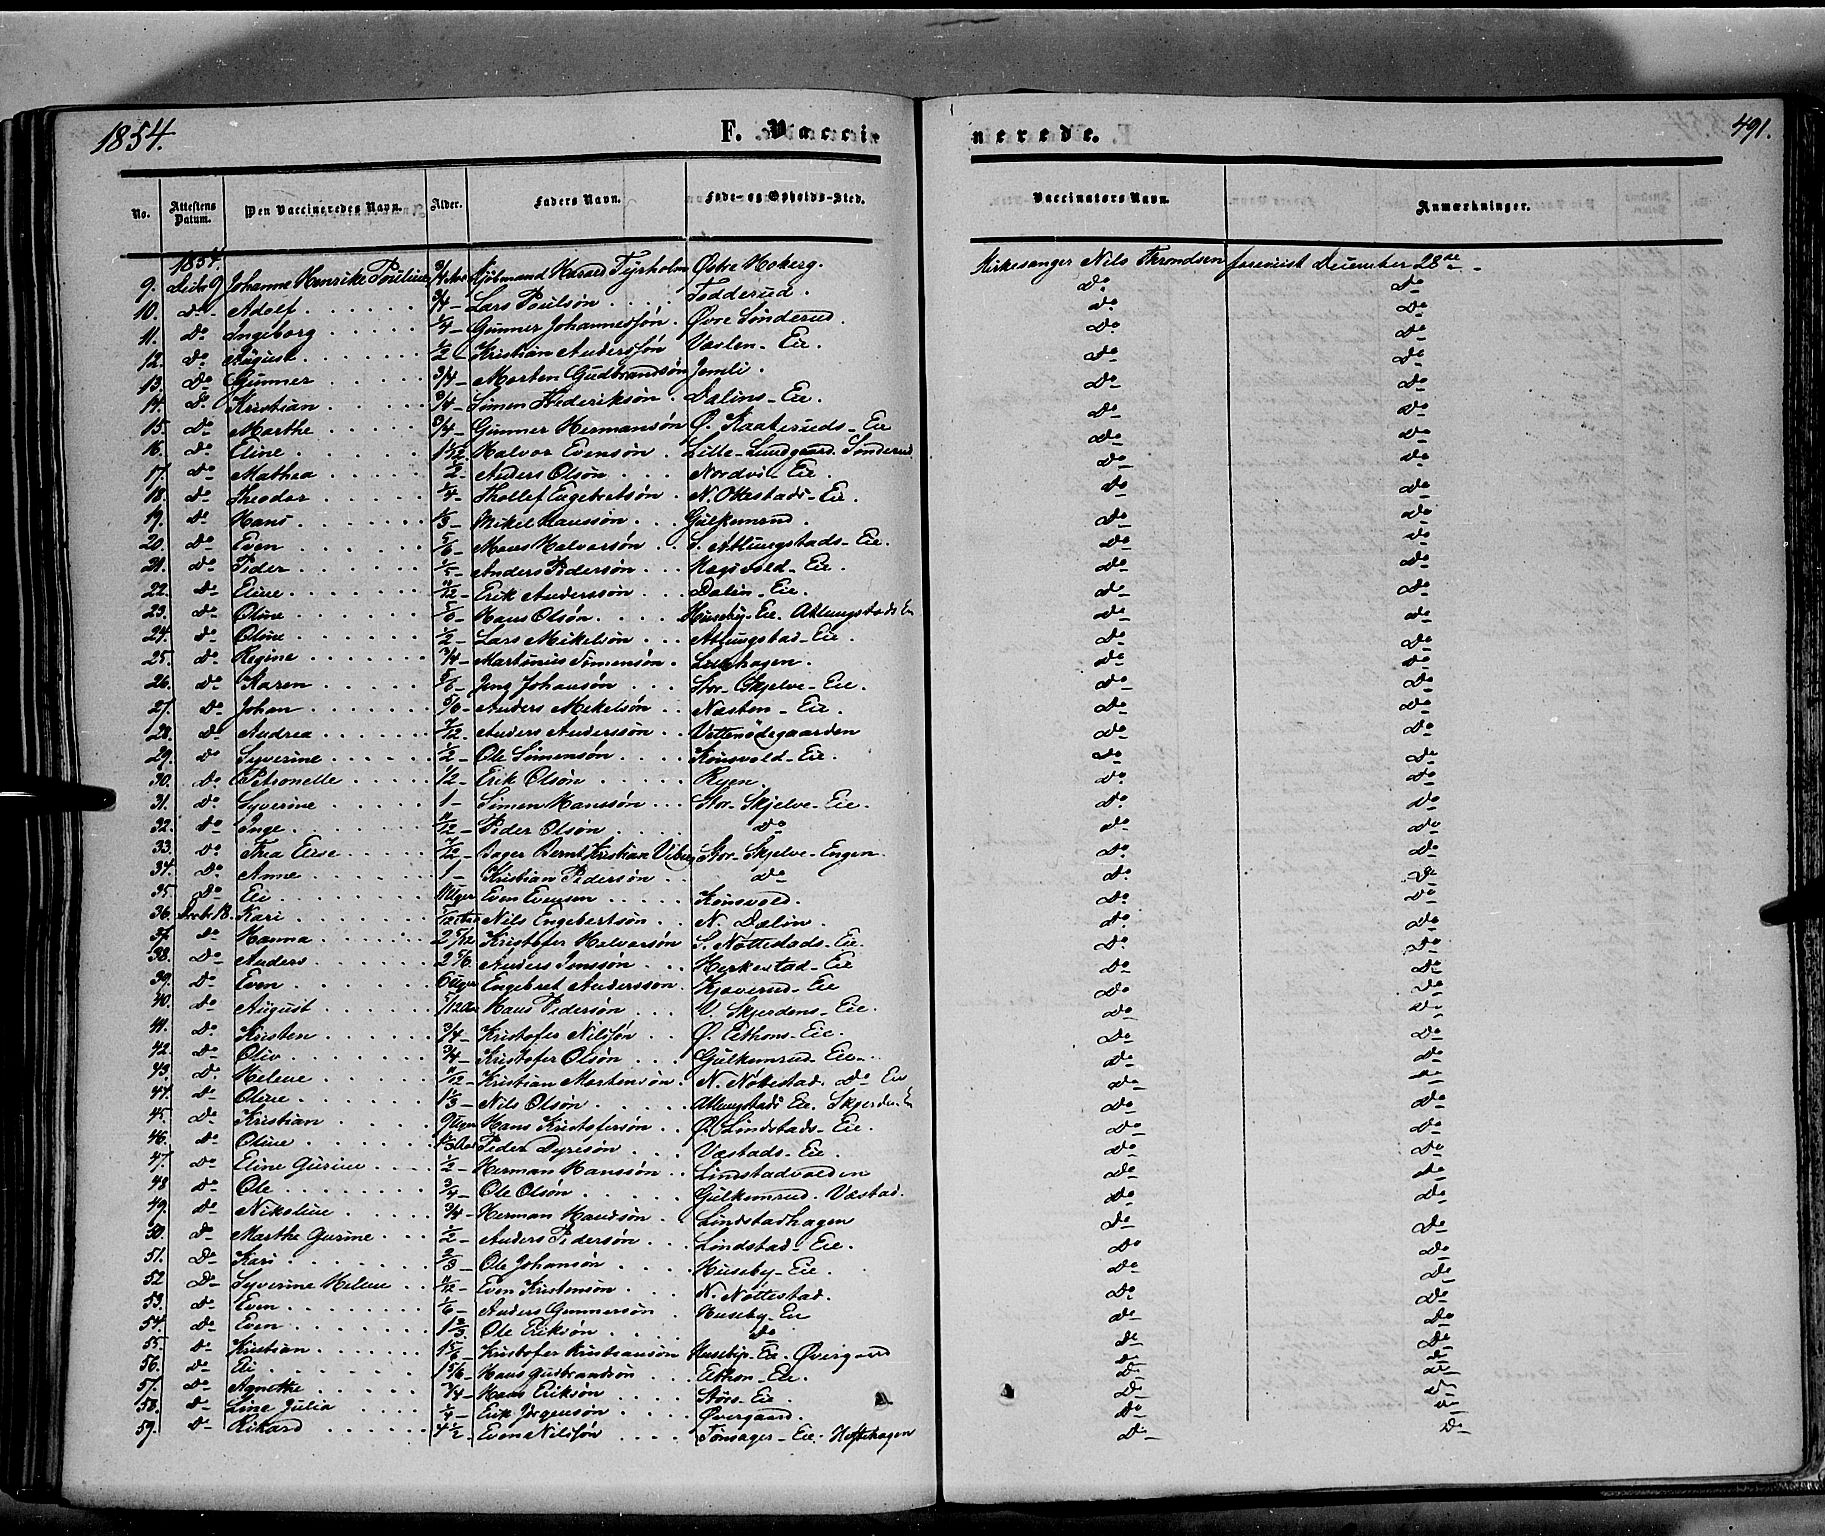 1854.
F. Vacci
nerede.
491.
No. Attestens Datum. Den Vaccineredes Navn. Alder. Faders Navn. Føde- og Opholds-Sted. Vaccinators Navn. Anmærkninger.
1854.
9. Johanne Henrikke Pouline 3/4 Harald Tyrholm Østre Hoberg. Kirkesanger Nils Throndsen foreviist December 28de
10. Do Adolf 3/4 Lars Poulsøn Todderud. Do Do
11. Do Ingeborg 1/4 Gunner Johannessøn. Øvre Sønderud. Do Do
12. Do August 1/2 Kristian Anderssøn Vaslen-Eie. Do Do
13. Do Gunner 3/4 Morten Gudbrandsøn Jemli. Do Do
14. Do Kristian 3/4 Simen Frederiksøn. Dalins-Eie. Do Do
15. Do Marthe 3/4 Gunner Hermansøn Ø. Kaateruds-Eie Do Do
16. Do Eline Halvor Evensøn. Lille-Lundgaard. Sønderud Do Do
17. Do Mathea 1/2 Anders Olsøn Nordvi-Eie. Do Do
18. Do Theodor 1/4 Thollef Engebretsøn N. Okestads-Eie. Do Do
19. Do Hans 1/3 Mikel Hanssøn Gulkomrud. Do Do
20. Do Even 5/6 Hans Halvorsøn S. Atlungstads-Eie. Do Do
21. Do Peder 1/5 Anders Pedersøn Hagevold-Eie. Do Do
22. Do Eline 11/12 Erik Anderssøn Dalin-Eie. Do Do
23. Do Oline 5/6 Hans Olsøn. Huseby-Eie. Atlungstads E Do Do
24. Do Oline 1/2 Lars Mikelsøn Atlungstad-Eie. Do Do
25. Do Regine 3/4 Martinius Simensøn. Do Do
26. Do Karen 5/6 Jens Johansøn Stor-Skjelve-Eie. Do Do
27. Do Johan 5/6 Anders Mikelsøn Nasten-Eie. Do Do
28. Do Andrea 7/12 Anders Anderssøn Vettenødegaarden Do Do
29. Do Syverine 1/2 Ole Simensøn Kønsvold-Eie. Do Do
30. Do Petronelle 1/2 Erik Olsøn Ryen Do Do
31. Do Syverine 1 Simen Hanssøn Stor-Skjelve-Eie. Do Do
32. Do Inge 11/12 Peder Olsøn Do Do Do
33. Do Thea Elise 7/12 Bager Bernt Kristian Viberg Stor-Skjelve-Engen. Do Do
34. Do Anne 1 Kristian Pedersøn Do Do Do
35. Do Eli Uger Even Evensen Kønsvold. Do Do
36. Kari Nils Engebertsøn N. Dalin. Do Do
37. Do Hanna 2 5/12 Kristofer Halvorsøn S. Nøttestads-Eie. Do Do
38. Do Anders 2 5/6 Anders Jenssøn Herkestad-Eie Do Do
39. Do Even 6 Uger Engebret Anderssøn. Kjaverud-Eie Do Do
40. Do August Hans Pedersøn V. Skjerdens-Eie. Do Do
41. Do Kristen 3/4 Kristofer Nilssøn Ø. Eithons-Eie. Do Do
42. Do Oliv 3/4 Kristofer Olsøn Gulkomrud-Eie. Do Do
43. Do Helene 11/12 Kristian Mortensøn. N. Nøttestad. Do Eie Do Do
44. Do Oline 1 1/3 Nils Olsøn Atlungstads Eie. Skjerden E Do Do
45. Do Kristian 9 Uger Hans Kristofersøn Ø. Lindstads-Eie. Do Do
46. Do Oline Peder Dyresøn Vastads-Eie. Do Do
47. Do Eline Gurine 1/2 Herman Hanssøn Lindstadvolden Do Do
48. Do Ole 3/4 Ole Olsøn Gulkomrud. Vastad. Do Do
49. Do Nikoline 3/4 Herman Hanssøn Lindstadhagen Do Do
50. Do Marthe Gurine 1/2 Anders Pedersøn Lindstad-Eie. Do Do
51. Do Kari 2/3 Ole Johansøn Huseby-Eie. Do Do
52. Do Syverine Helene 11/12 Even Kristensøn N. Nøttestad. Do Do
53. Do Even 1/6 Anders Gunnersøn Huseby-Eie Do Do
54. Do Even 1 2/3 Ole Eriksøn Do Do Do
55. Do Kristian 1 5/6 Kristofer Kristiansøn Huseby-Eie. Øvergaard Do Do
56. Do Eli 1 5/6 Hans Gudbrandsøn Eithon-Eie. Do Do
57. Do Agnethe 3/4 Hans Eriksøn Størs-Eie. Do Do
58. Do Line Julia 1/4 Erik Jørgensøn Øvergaard. Do Do
59. Do Rikard 4 1/2 Even Nilssøn Tønsager-Eie. Hoftehagen Do Do